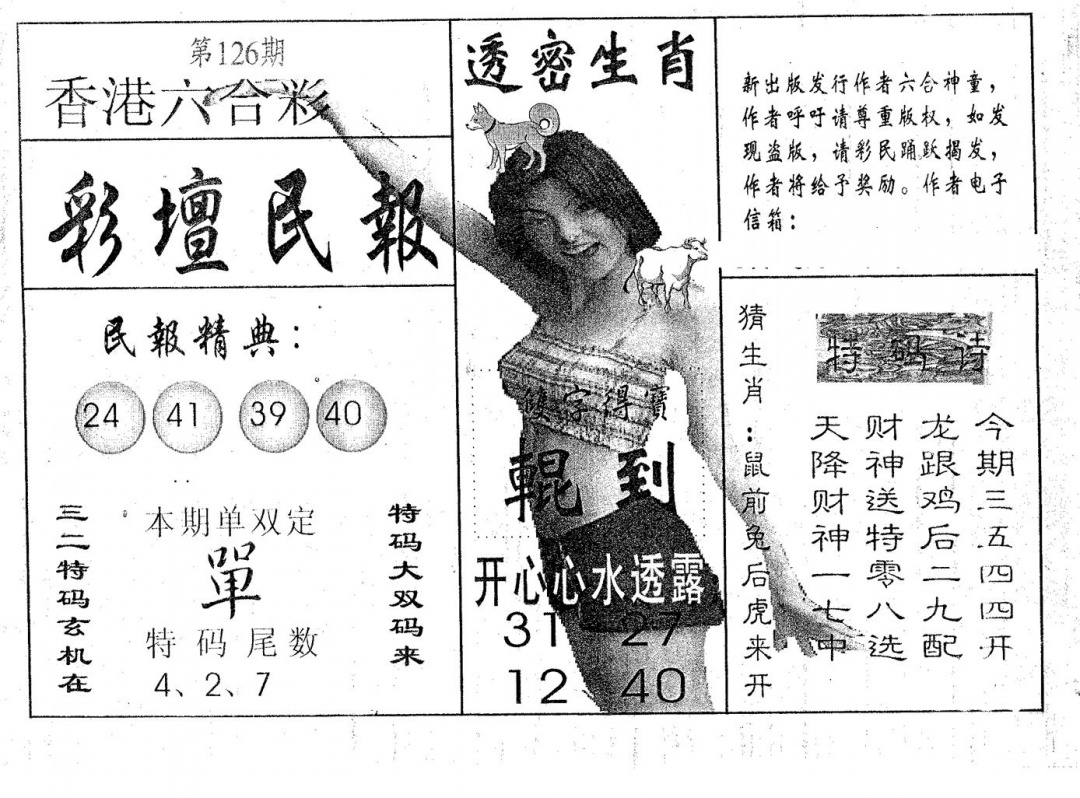 第126期
香港六合彩
彩壇民報
民報精典：
24 41 39 40
三二特码玄机在
本期单双定
單
特码尾数
4、2、7
特码大双码来
透密生肖
雙字得寶
輥到
开心心水透露
31 27
12 40
新出版发行作者六合神童，
作者呼吁请尊重版权，如发
现盗版，请彩民踊跃揭发，
作者将给予奖励。作者电子
信箱：
猜生肖：鼠前兔后虎来开
特码诗
今期三五四四开
龙跟鸡后二九配
财神送特零八选
天降财神一七中